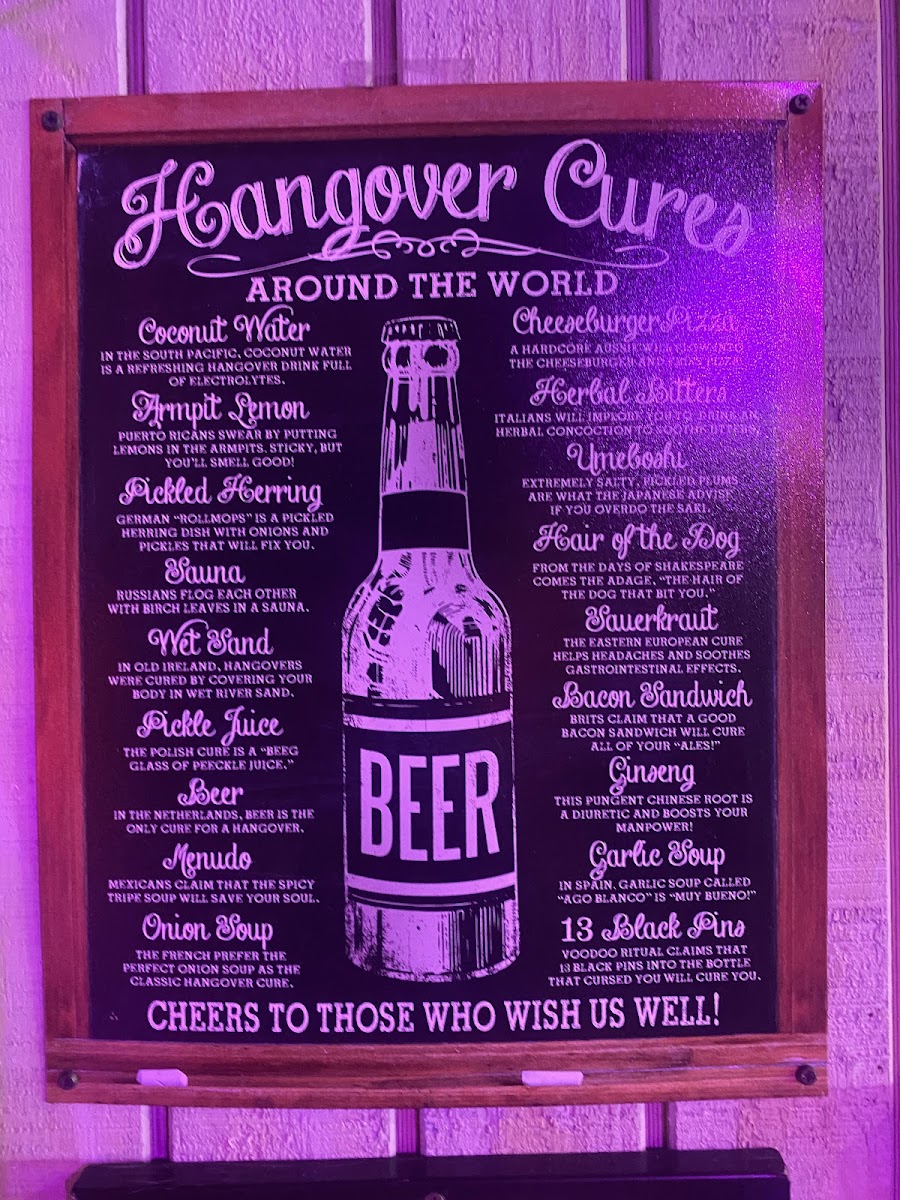 Hangover Cures
AROUND THE WORLD
Coconut Water
IN THE SOUTH PACIFIC, COCONUT WATER
IS A REFRESHING HANGOVER DRINK FULL
OF ELECTROLYTES.
Armpit Lemon
PUERTO RICANS SWEAR BY PUTTING
LEMONS IN THE ARMPITS. STICKY, BUT
YOU'LL SMELL GOOD!
Pickled Herring
GERMAN "ROLLMOPS" IS A PICKLED
HERRING DISH WITH ONIONS AND
PICKLES THAT WILL FIX YOU.
Sauna
RUSSIANS FLOG EACH OTHER
WITH BIRCH LEAVES IN A SAUNA.
Wet Sand
IN OLD IRELAND, HANGOVERS
WERE CURED BY COVERING YOUR
BODY IN WET RIVER SAND.
Pickle Juice
THE POLISH CURE IS A "BEEG
GLASS OF PEECKLE JUICE."
Beer
IN THE NETHERLANDS, BEER IS THE
ONLY CURE FOR A HANGOVER.
Menudo
MEXICANS CLAIM THAT THE SPICY
TRIPE SOUP WILL SAVE YOUR SOUL.
Onion Soup
THE FRENCH PREFER THE
PERFECT ONION SOUP AS THE
CLASSIC HANGOVER CURE.
BEER
Cheeseburger Pizza
A HARDCORE AUSSIE WILL
THE CHEESEBURGER
Herbal Bitters
ITALIANS WILL IMPLORE YOU TO DRINK AN
HERBAL CONCOCTION TO SOOTHE
Umeboshi
EXTREMELY SALTY, PICKLED PLUMS
ARE WHAT THE JAPANESE ADVISE
IF YOU OVERDO THE SAKI.
Hair of the Dog
FROM THE DAYS OF SHAKESPEARE
COMES THE ADAGE, "THE HAIR OF
THE DOG THAT BIT YOU."
Sauerkraut
THE EASTERN EUROPEAN CURE
HELPS HEADACHES AND SOOTHES
GASTROINTESTINAL EFFECTS.
Bacon Sandwich
BRITS CLAIM THAT A GOOD
BACON SANDWICH WILL CURE
ALL OF YOUR "ALES!"
Ginseng
THIS PUNGENT CHINESE ROOT IS
A DIURETIC AND BOOSTS YOUR
MANPOWER!
Garlic Soup
IN SPAIN, GARLIC SOUP CALLED
"AGO BLANCO" IS "MUY BUENO!"
13 Black Pins
VOODOO RITUAL CLAIMS THAT
13 BLACK PINS INTO THE BOTTLE
THAT CURSED YOU WILL CURE YOU.
CHEERS TO THOSE WHO WISH US WELL!